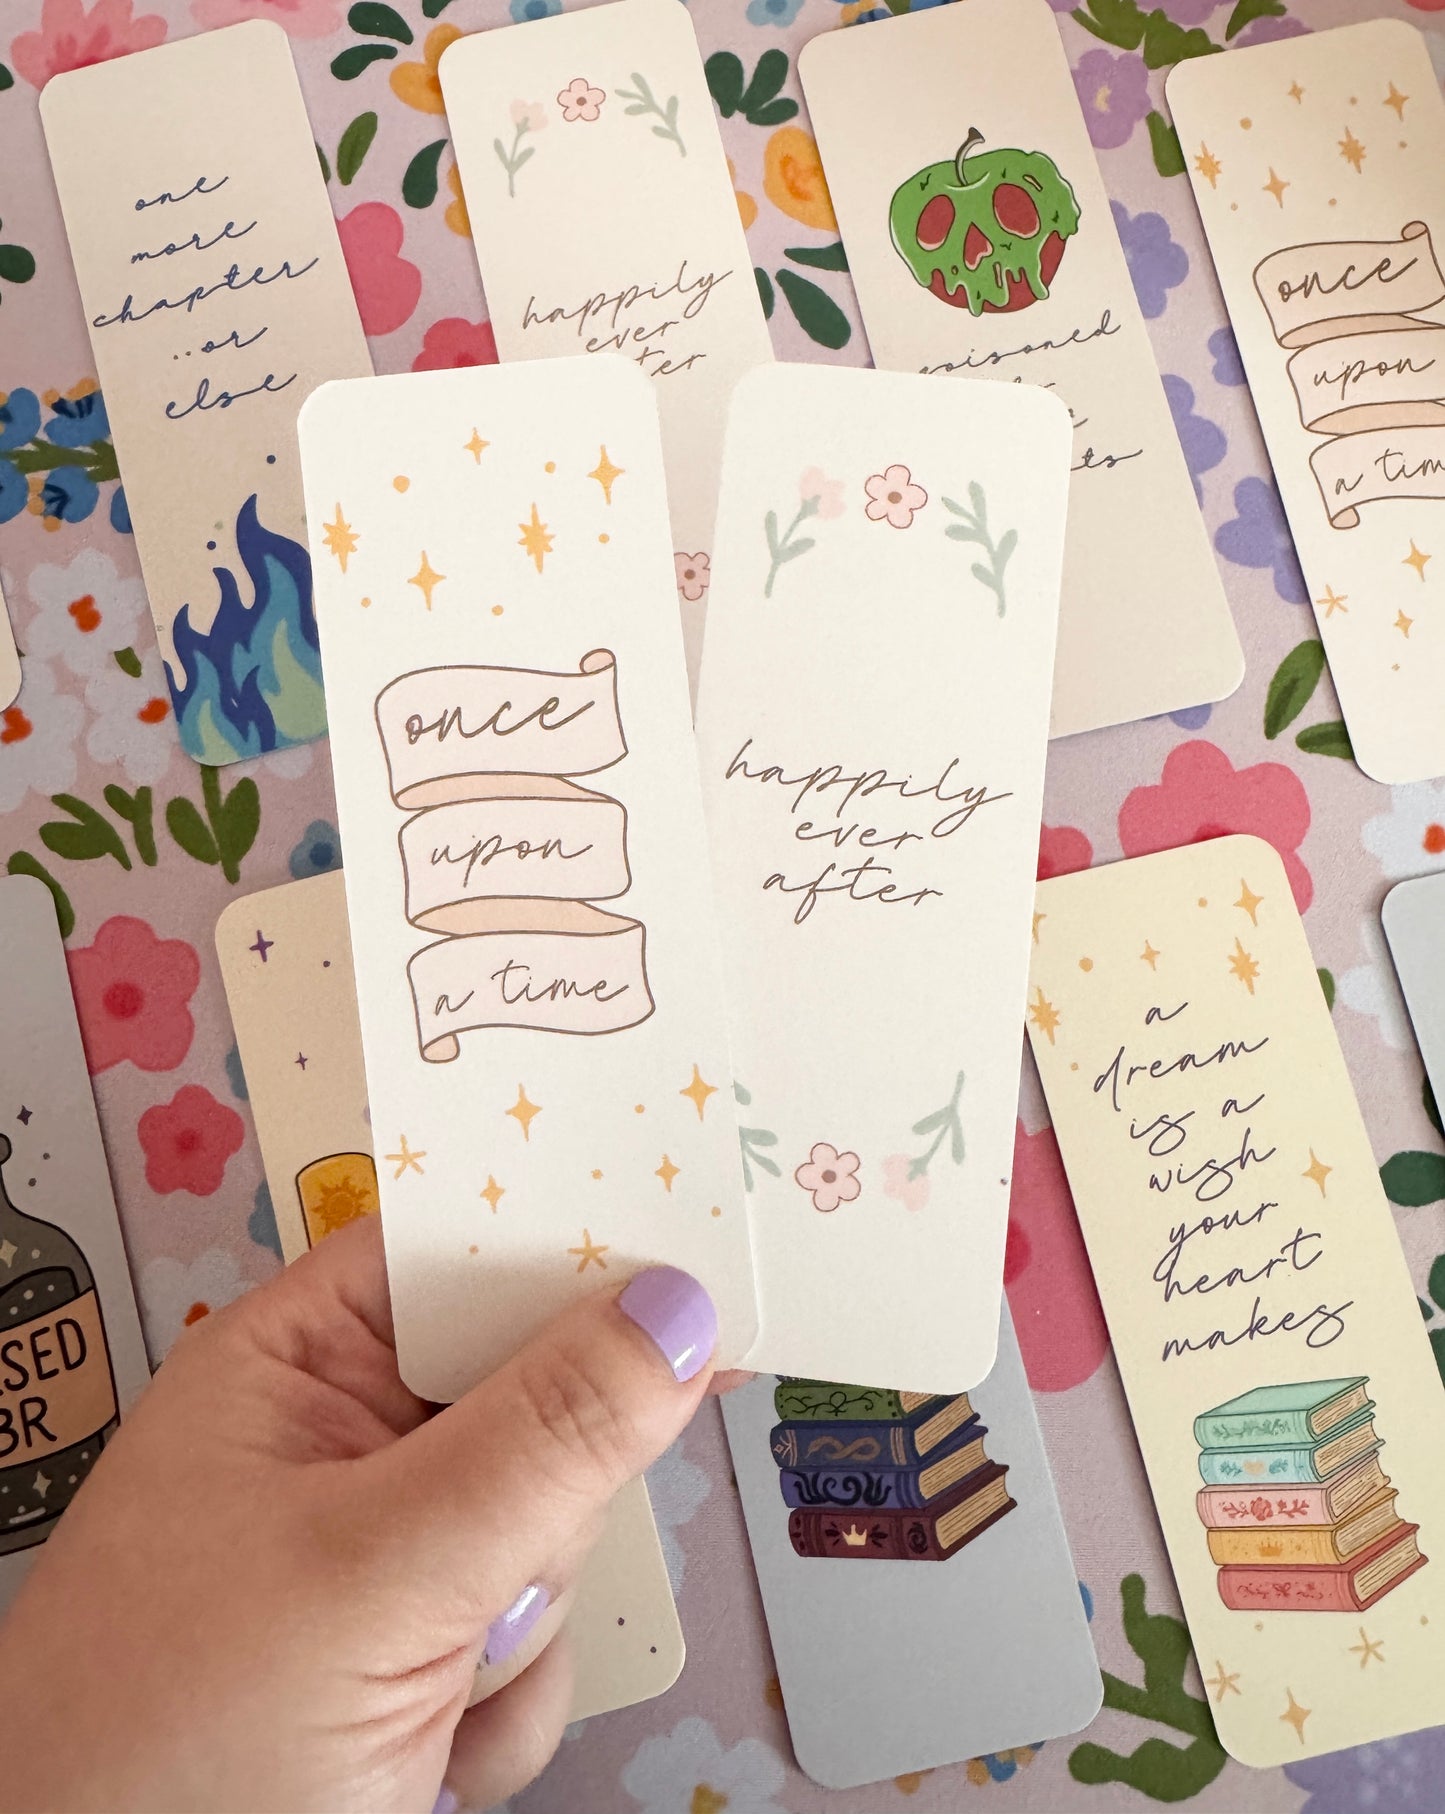 one
more
chapter
..or
else
happily
ever
once
upon
once
upon
a time
happily
ever
after
a
dream
is a
wish
your
heart
makes